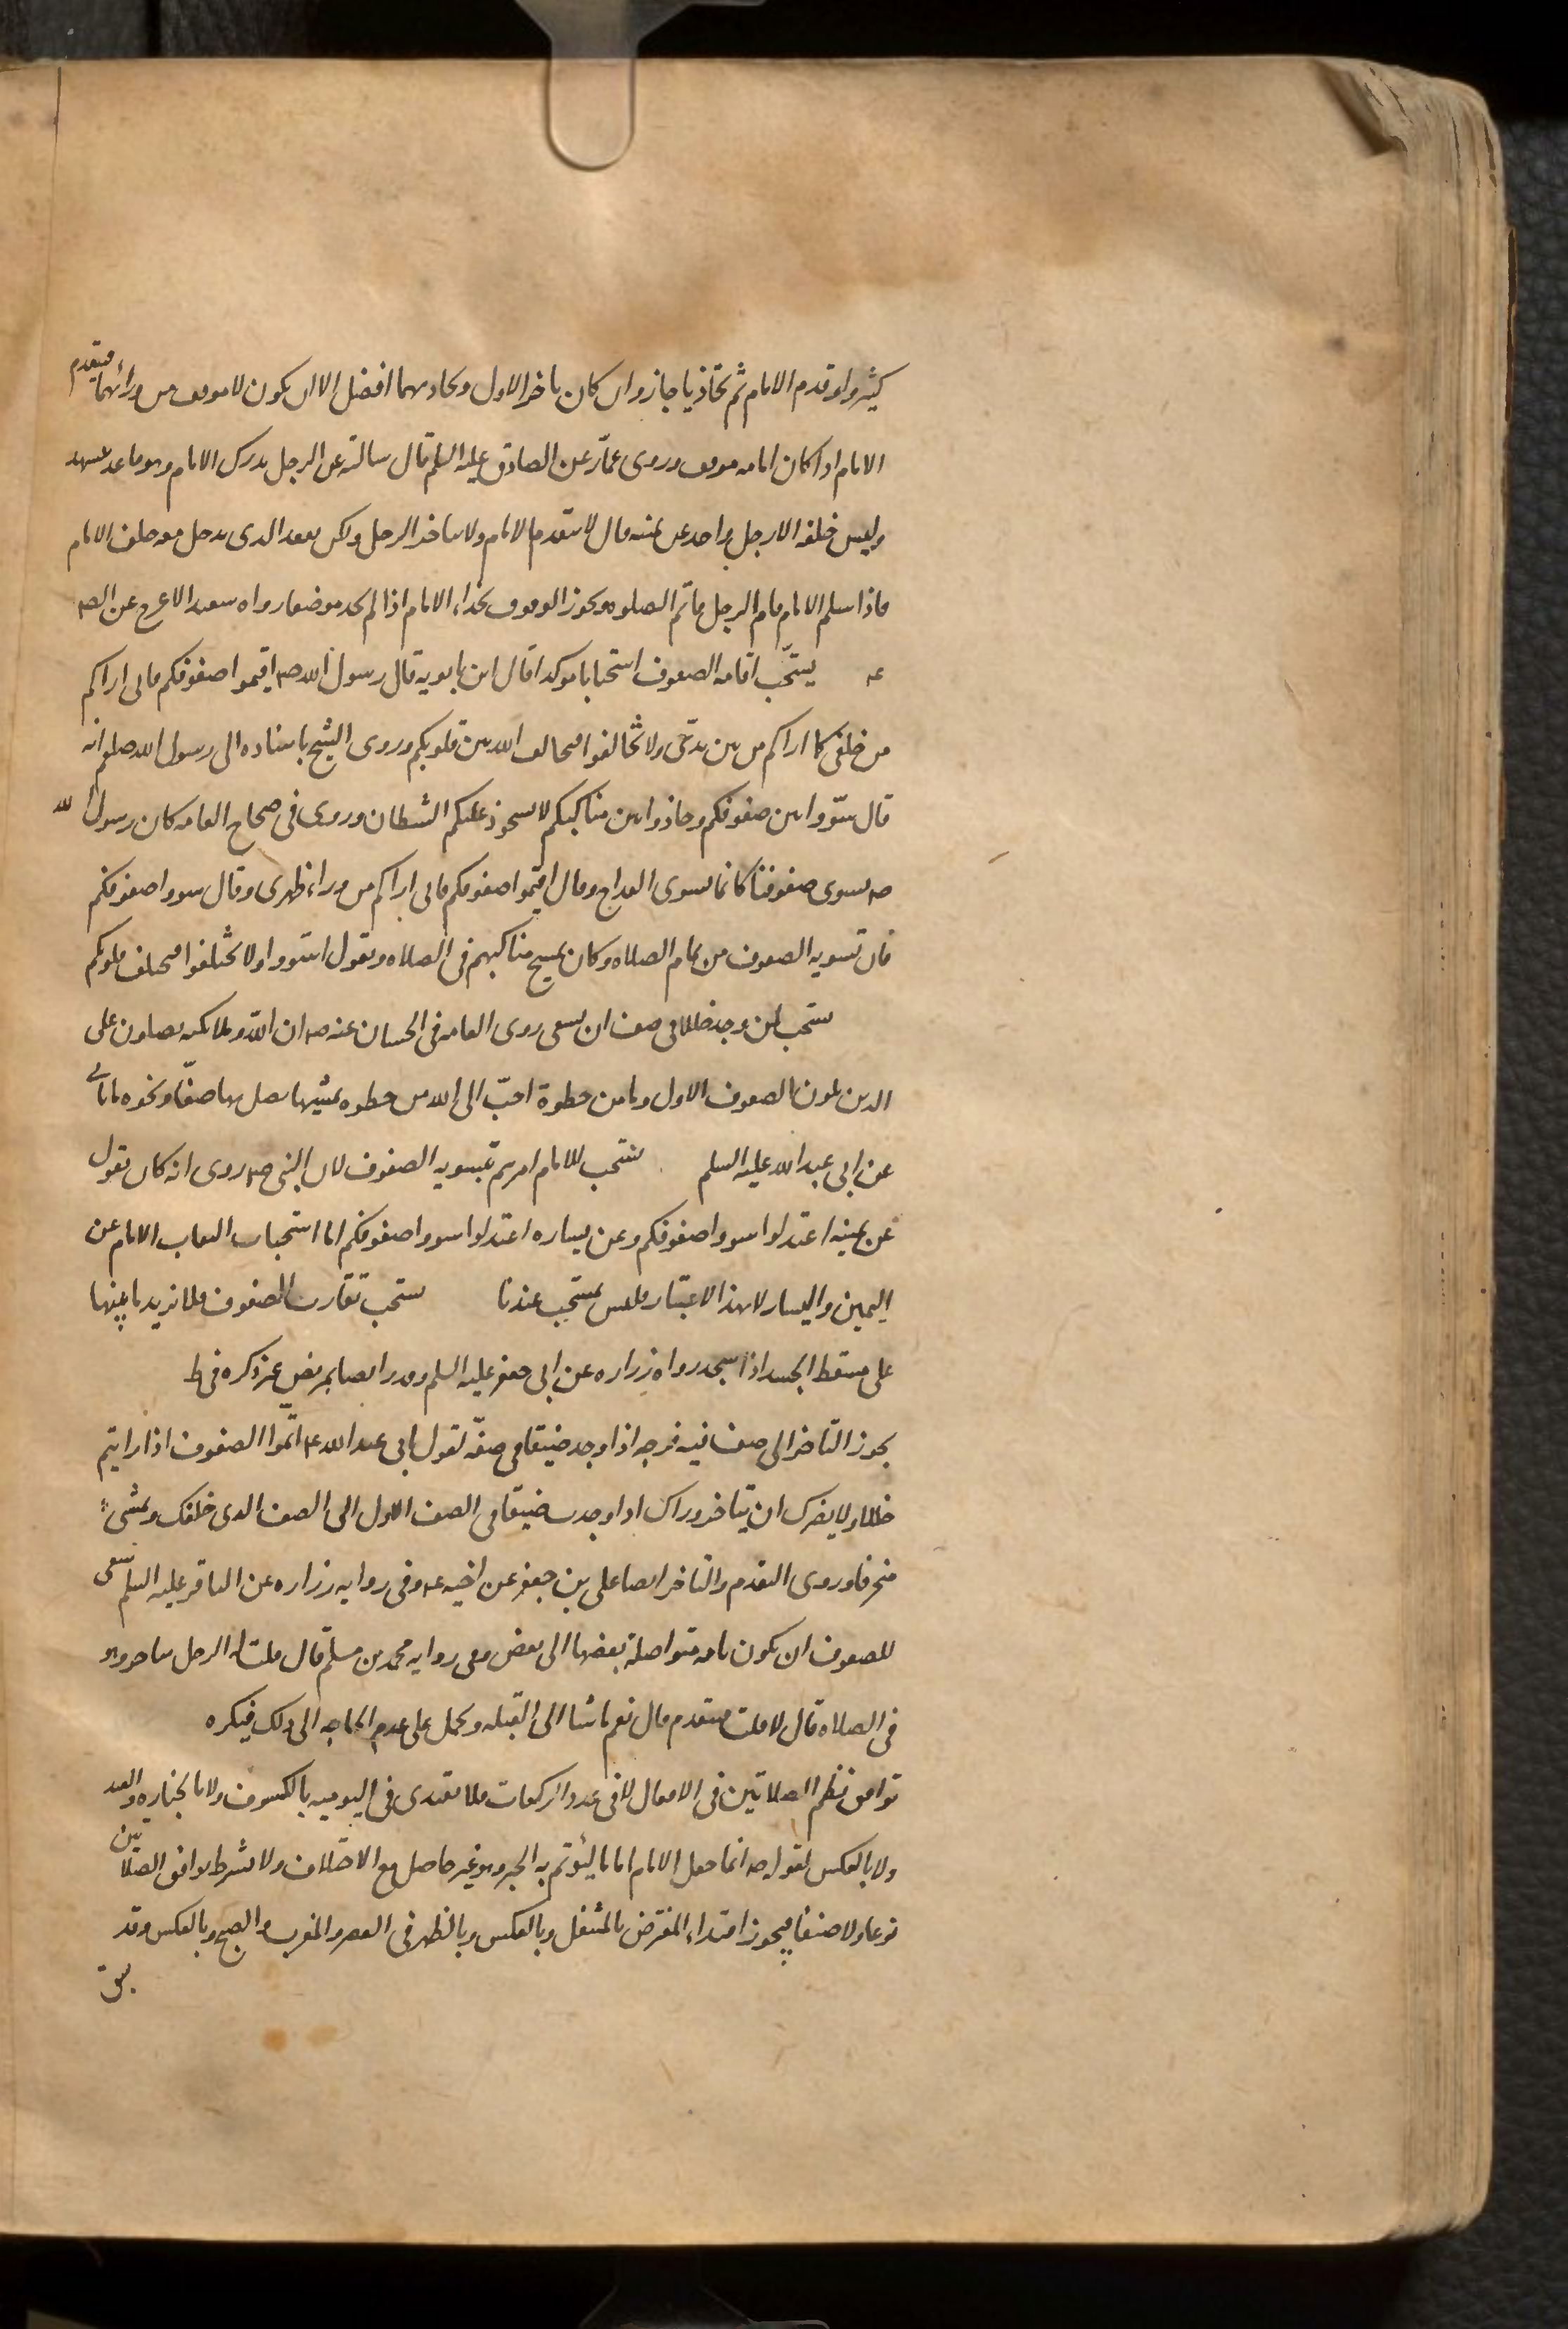 كثير ولو تقدم الامام ثم تحاذيا جاز وان كان تاخر الاول وتحاديهما افضل الا ان يكون لا موقف من ورائهما فيتقدم
الامام اذا كان امامه موقف وروى عمار عن الصادق عليه السلم قال سالته عن الرجل يدرك الامام وهو قاعد يتشهد
وليس خلفه الا رجل واحد عن يمينه قال لا يتقدم الامام ولا يتاخر الرجل ولكن يقعد الذى يدخل معه خلف الامام
فاذا سلم الامام قام الرجل فاتم الصلوه ويجوز الوقوف بحذاء الامام اذا لم يجد موضعا رواه سعيد الاعرج عن الص
عه يستحب اقامه الصفوف استحبابا موكدا قال ابن بابويه قال رسول الله ص اقيموا صفوفكم فانى اراكم
من خلفى كما اراكم من بين يدى ولا تخالفوا فيخالف الله بين قلوبكم وروى الشيخ باسناده الى رسول الله صلعم انه
قال سووا بين صفوفكم وحاذوا بين مناكبكم لا يستحوذ عليكم الشيطان وروى فى صحاح العامه كان رسول الله
صه يسوى صفوفنا كانما يسوى القداح وقال اقيموا صفوفكم فانى اراكم من وراء ظهرى وقال سووا صفوفكم
فان تسويه الصفوف من تمام الصلاه وكان يمسح مناكبهم فى الصلاه ويقول استووا ولا تختلفوا فيختلف قلوبكم
يستحب لمن وجد خللا فى صف ان يسعى روى العامه فى الحسان عنه ص ان الله وملائكته يصلون على
الذين يلون الصفوف الاول وما من خطوة احب الى الله من خطوه يمشيها يصل بها صفا ونحوه ياتى
عن ابى عبد الله عليه السلم يستحب للامام امرهم بتسويه الصفوف لان النبى ص روى انه كان يقول
عن يمينه اعتدلوا سووا صفوفكم وعن يساره اعتدلوا سووا صفوفكم اما استحباب التفات الامام عن
اليمين واليسار لا لهذا الاعتبار فليس بمستحب عندنا يستحب تقارب الصفوف فلا يزيد ما بينها
على مسقط الجسد اذا سجد رواه زراره عن ابى جعفر عليه السلم وقدر ايضا بمربض عنز ذكره فى ط
يجوز التاخر الى صف فيه فرجه اذا وجد ضيقا فى صفه لقول ابى عبد الله ع اتموا الصفوف اذا رايتم
خللا ولا يضرك ان تتاخر وراك اذا وجدت ضيقا فى الصف الاول الى الصف الذى خلفك وتمشى
منحرفا وروى التقدم والتاخر ايضا على بن جعفر عن اخيه ع وفى روايه زراره عن الباقر عليه السلم ينبغى
للصفوف ان تكون تامه متواصلة بعضها الى بعض وفى روايه محمد بن مسلم قال قلت له الرجل يتاخر وهو
فى الصلاه قال لا قلت فيتقدم قال نعم ماشا الى القبله ويحمل على عدم الحاجه الى ذلك فيكره
توافق نظم الصلاتين فى الافعال لا فى عدد الركعات فلا يقتدى فى اليوميه بالكسوف ولا بالجنازه والعيد
ولا بالعكس لقوله ص انما جعل الامام اماما ليؤتم به الخبر وهو غير حاصل مع الاختلاف ولا يشترط توافق الصلاتين
نوعا ولا صنفا فيجوز اقتداء المفترض بالمتنفل وبالعكس وبالظهر فى العصر والمغرب والصبح وبالعكس وقد
سبق